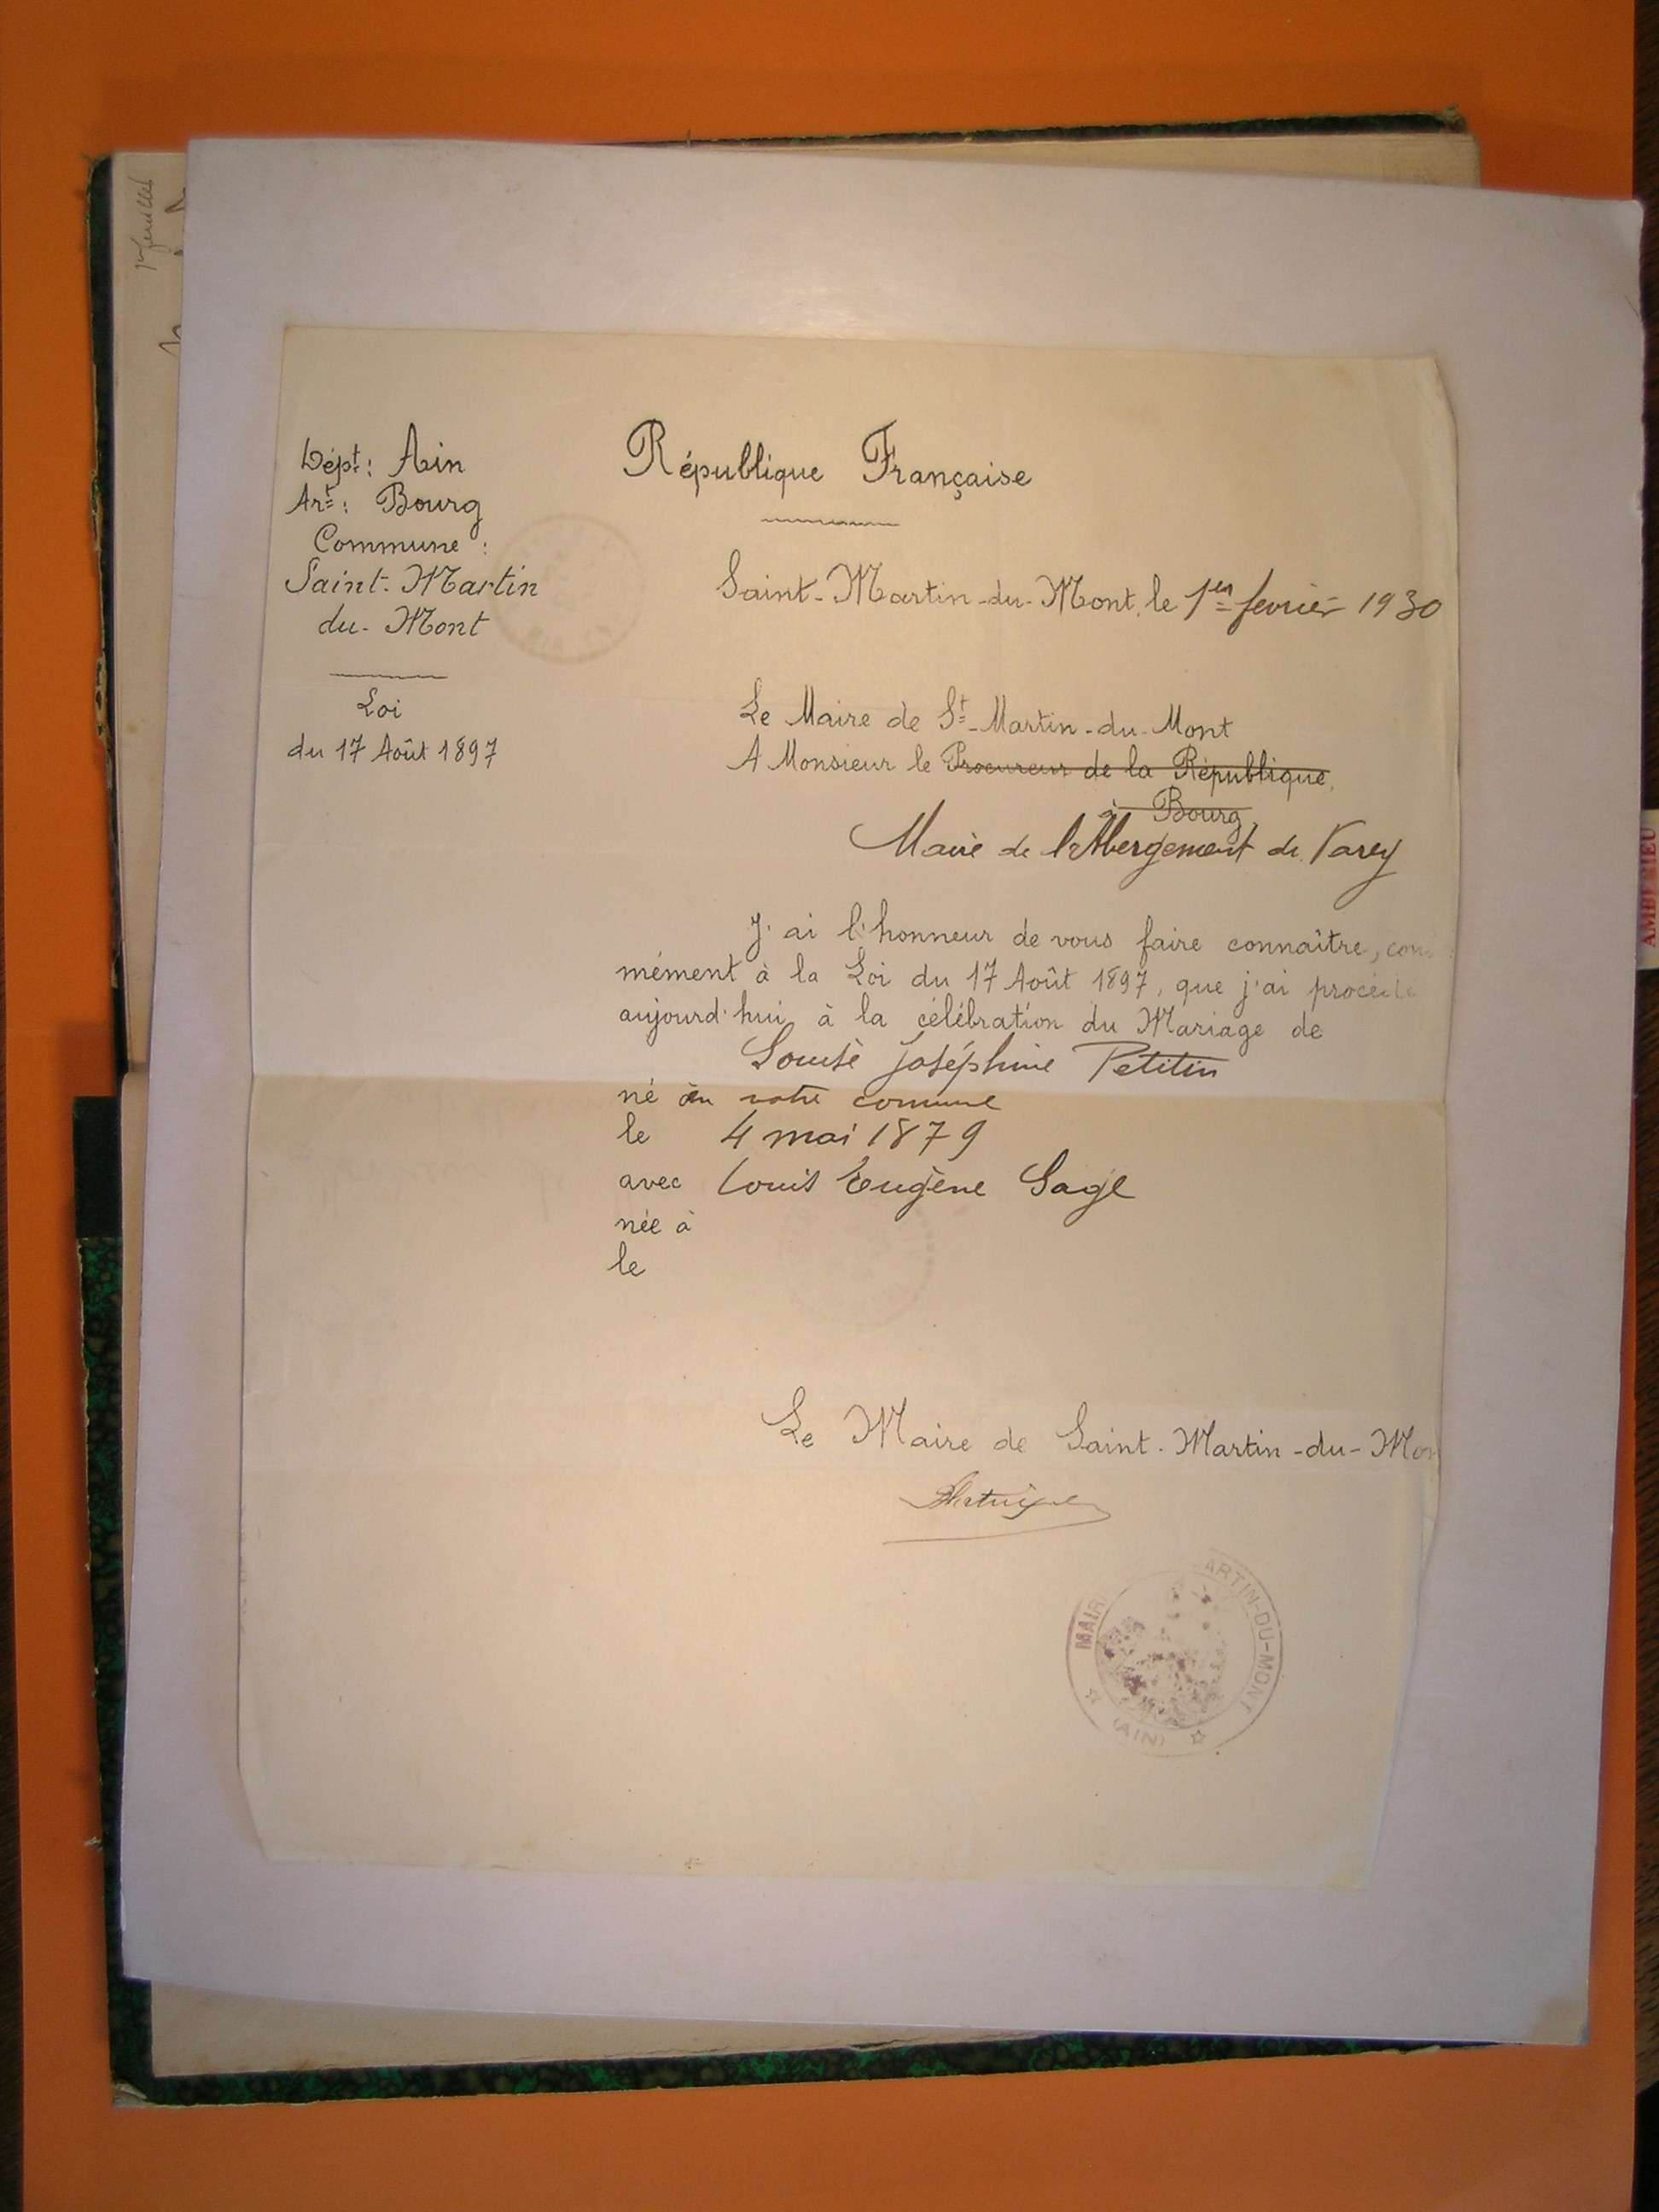 Dépt: Ain
Art: Bourg
Commune :
Saint-Martin
du-Mont
Loi
du 17 Août 1897
République Française
Saint-Martin-du-Mont, le 1er fevrier 1930
Le Maire de St-Martin-du-Mont
A Monsieur le Procureur de la République,
à Bourg,
Maire de l'Abergement de Varey
J'ai l'honneur de vous faire connaître, con
mément à la Loi du 17 Août 1897, que j'ai procédé
aujourd'hui à la célébration du Mariage de
Louise Joséphine Petitin
né en votre commune
le 4 mai 1879
avec Louis Eugène Sage
née à
le
Le Maire de Saint-Martin-du-Mon
MAIRI ARTIN-DU-MONT
(AIN)
AMBERIEU